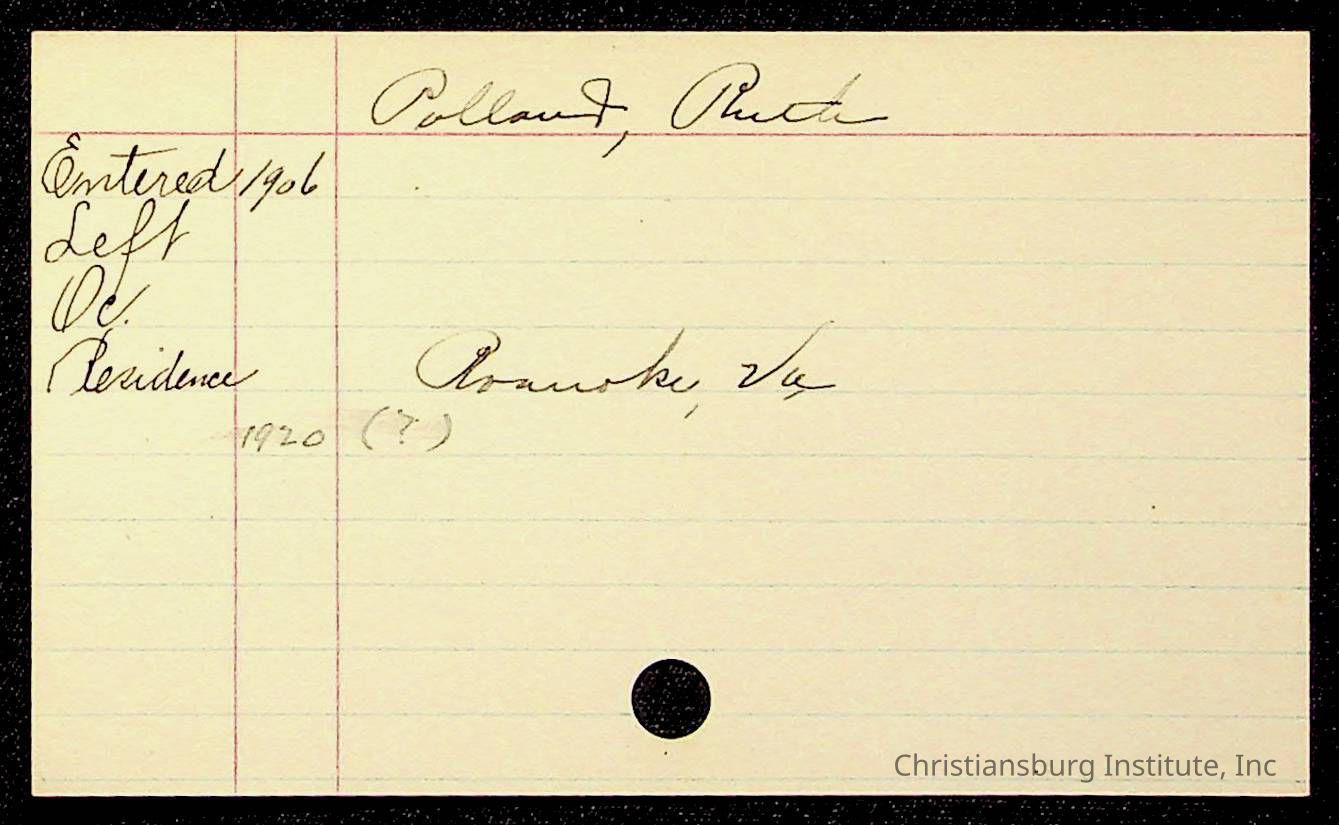 Polland, Ruth
Entered 1906
Left
Oc.
Residence Roanoke, Va.
1920 (?)
Christiansburg Institute, Inc